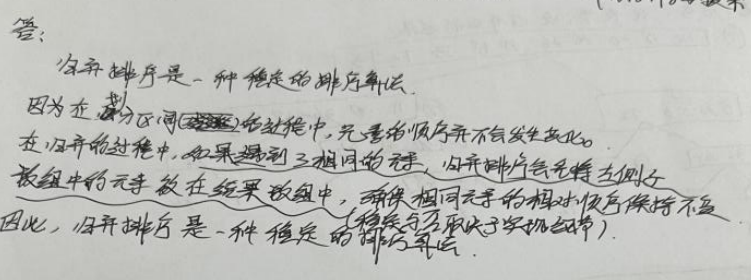 答:
归并排序是一种稳定的排序算法.
因为在划分区间的过程中,元素的顺序并不会发生变化。
在归并的过程中,如果遇到了相同的元素,归并排序会先将左侧子
数组中的元素放在结果数组中,确保相同元素的相对顺序保持不变
(稳定与否取决于实现细节)
因此,归并排序是一种稳定的排序算法.